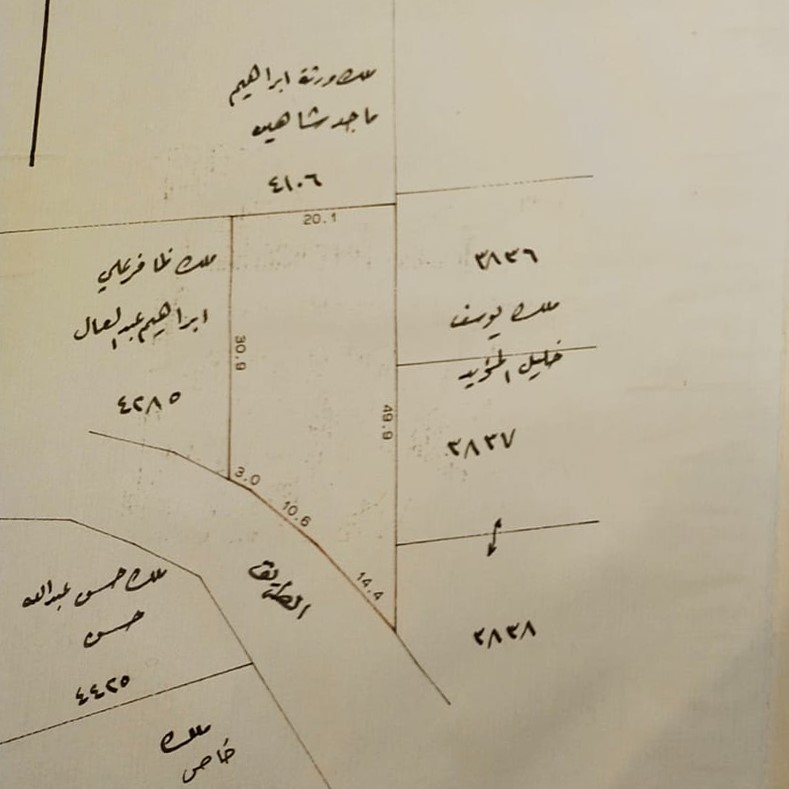 ملك ورثة ابراهيم
ماجد شاهين
٤١٠٦
20.1
ملك ظافر علي
ابراهيم عبدالعال
٤٢٨٥
30.9
49.9
٣٨٣٦
ملك يوسف
خليل المؤيد
٣٨٣٧
٣٨٣٨
3.0
10.6
14.4
الطريق
ملك حسن عبدالله
حسن
٤٤٢٥
ملك
خاص